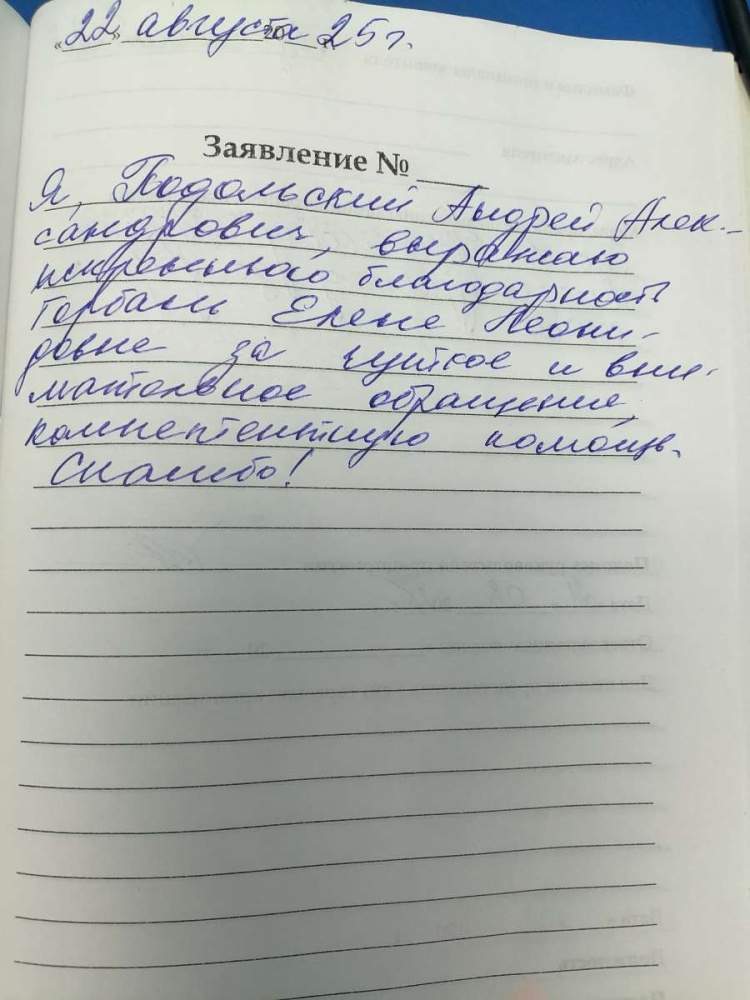 «22» августа 2025 г.
Заявление №
Я, Подольский Андрей Алек-
сандрович, выражаю
искреннюю благодарность
Горбань Елене Леони-
довне за чуткое и вни-
мательное обращение,
компетентную помощь.
Спасибо!